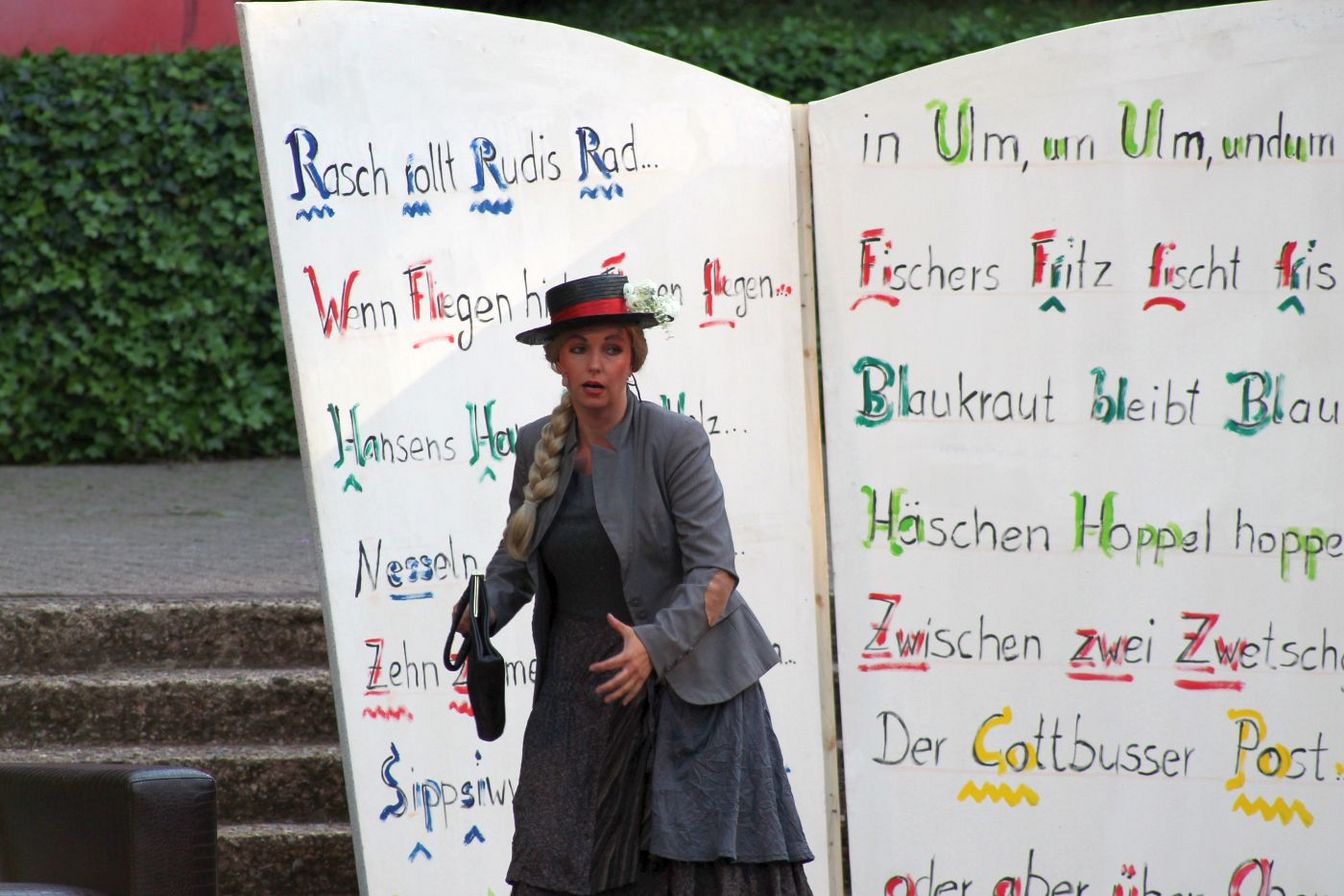 Rasch rollt Rudis Rad...
Wenn Fliegen fliegen...
Hansens
Nesseln
Zehn
in Ulm, um Ulm, und um
Fischers Fritz fischt fris
Blaukraut bleibt Blau
Häschen Hoppel hoppe
Zwischen zwei Zwetsch
Der Cottbusser Post
oder aber über Ober